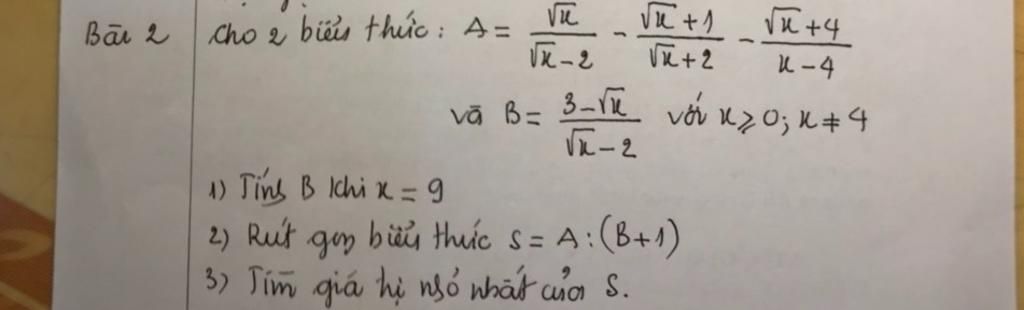 Bài 2 Cho 2 biểu thức: A = √x/(√x-2) - (√x+1)/(√x+2) - (√x+4)/(x-4)
và B = (3-√x)/(√x-2) với x ≥ 0; x ≠ 4
1) Tính B khi x = 9
2) Rút gọn biểu thức S = A:(B+1)
3) Tìm giá trị nhỏ nhất của S.